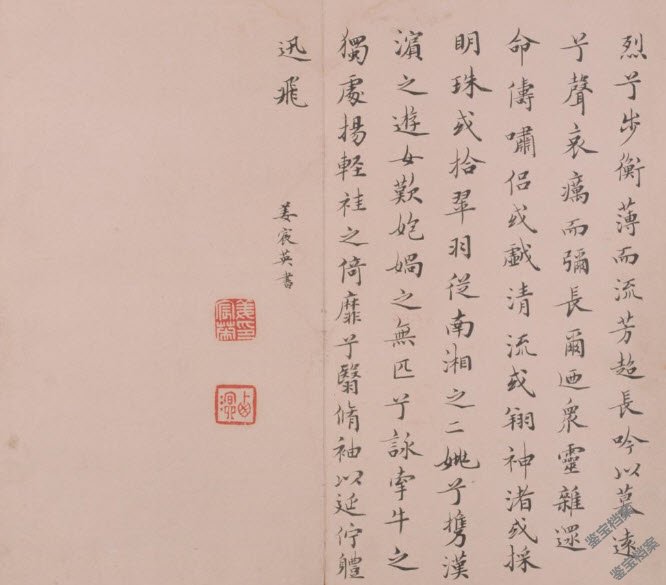 烈兮步衡薄而流芳超長吟以慕遠
兮聲哀癘而彌長爾迺衆靈雜遝
命儔嘯侣或戲清流或翔神渚或採
明珠或拾翠羽從南湘之二姚兮攜漢
濱之遊女歎媧之無匹兮詠牽牛之
獨處揚輕袿之倚靡兮翳脩袖以延佇軆
迅飛
姜宸英書
姜印宸英
西溟
鉴宝档案
鉴宝档案